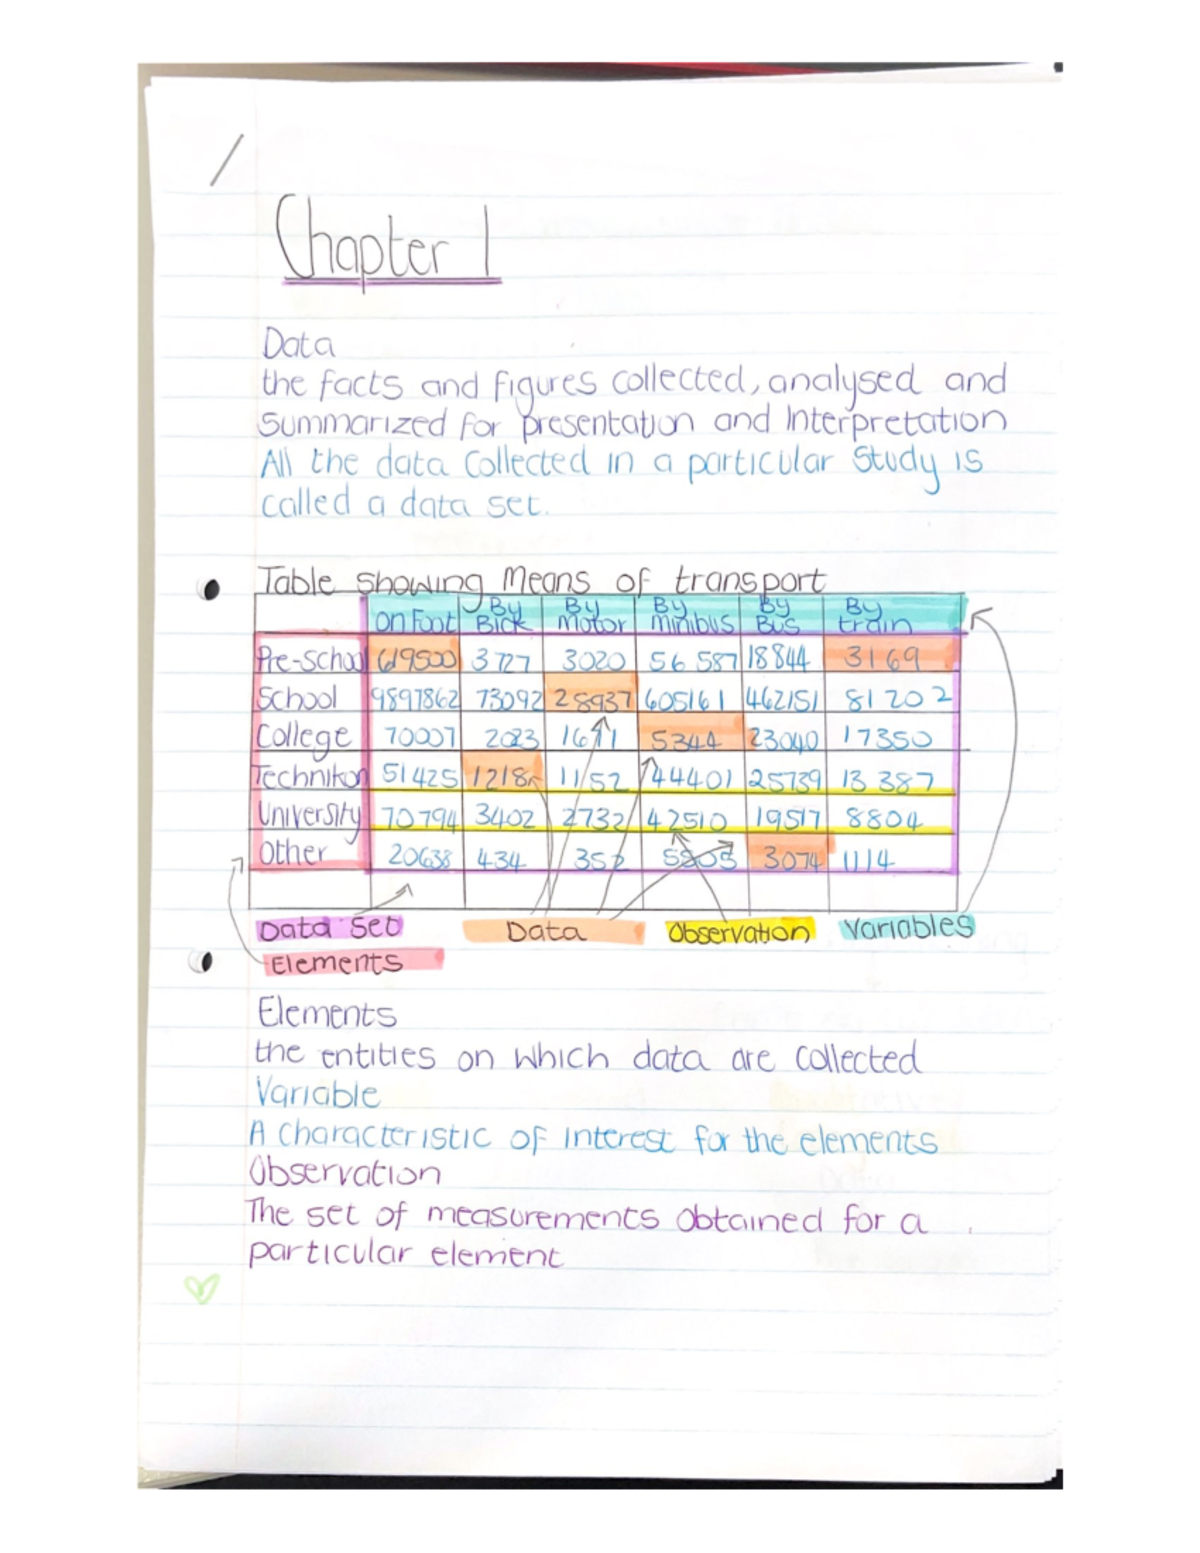 Chapter 1
Data
the facts and figures collected, analysed and
Summarized for presentation and Interpretation
All the data collected in a particular study is
called a data set.
Table showing Means of transport
On Foot By Bick By Motor By Minibus By Bus By train
Pre-School 619500 3727 3020 56 587 18844 3169
School 9897862 73092 28937 605161 462151 81 202
College 70007 2023 5344 23040 17350
Technikon 51425 1218 1152 44401 25739 13 387
University 70794 3402 2732 42510 19517 8804
Other 20638 434 352 3074 1114
Data Set Data Observation Variables
Elements
Elements
the entities on which data are collected
Variable
A characteristic of interest for the elements
Observation
The set of measurements obtained for a
particular element